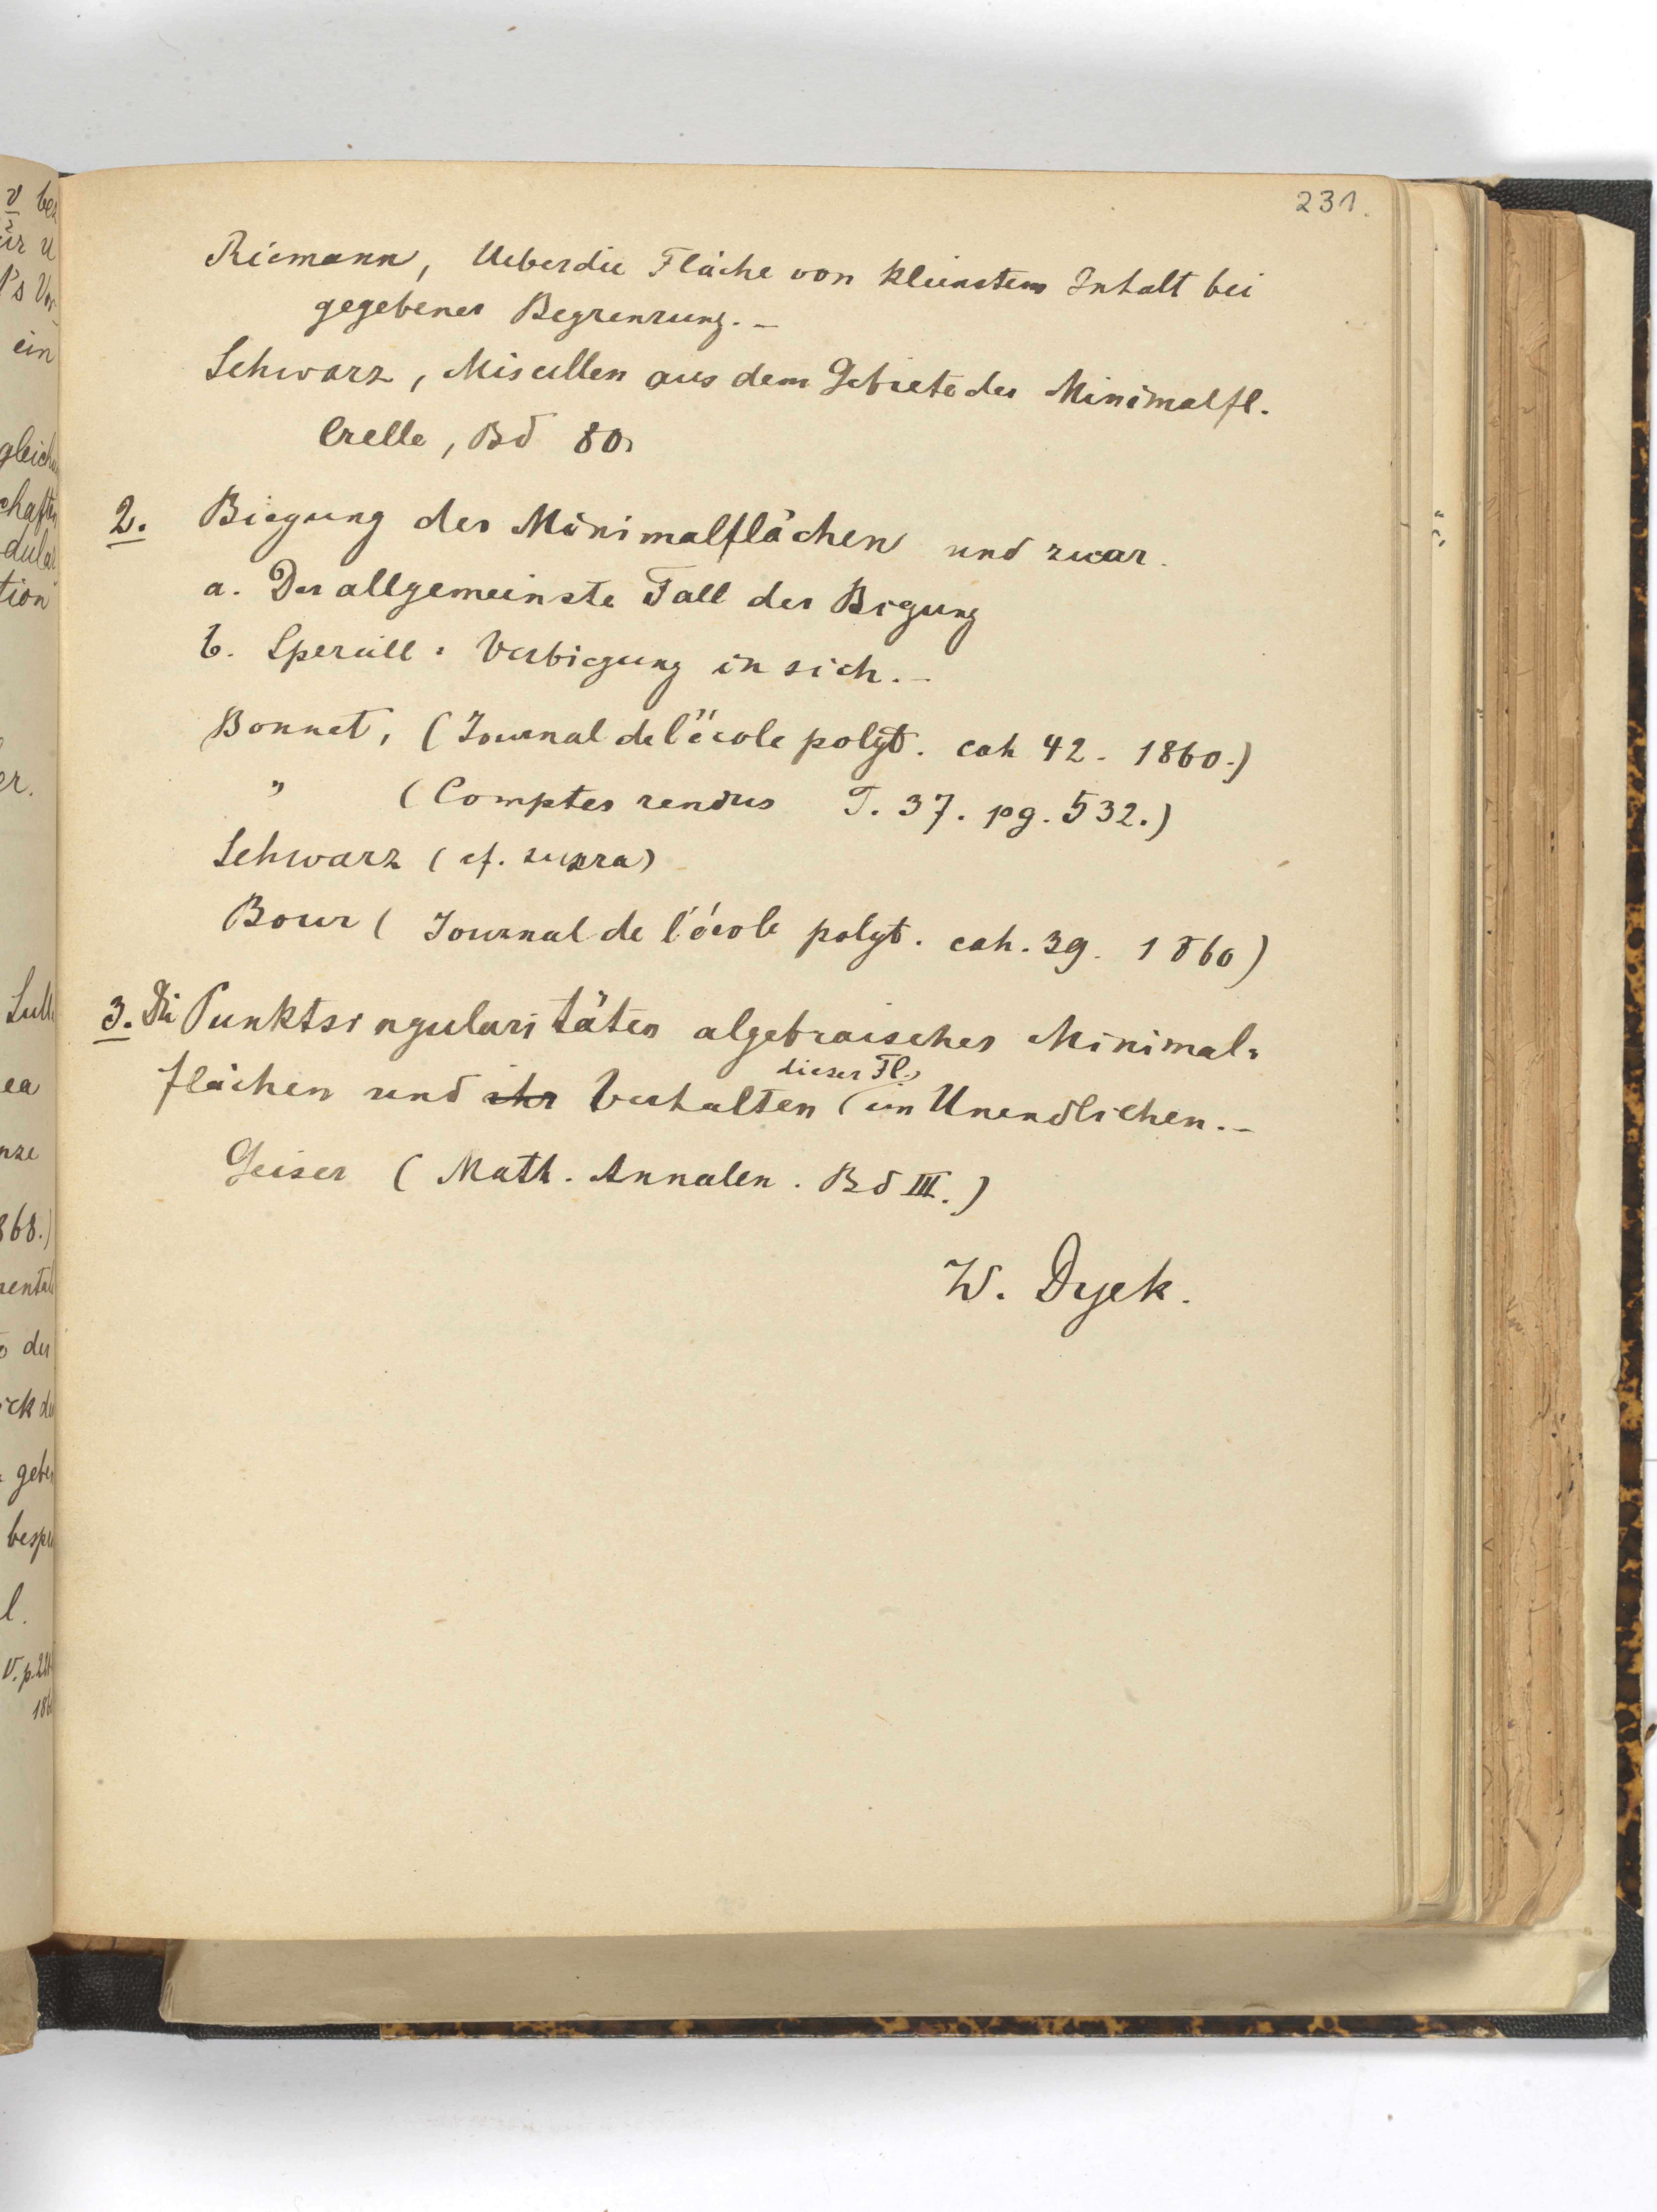 231.
Riemann, Ueber die Fläche von kleinstem Inhalt bei
gegebener Begrenzung. —
Schwarz, Miscellen aus dem Gebiete der Minimalfl.
Crelle, Bd 80.
2. Biegung der Minimalflächen und zwar.
a. Der allgemeinste Fall der Biegung
b. Speciell: Verbiegung in sich. —
Bonnet, (Journal de l'école polyt. cah 42. 1860.)
" (Comptes rendus T. 37. pg. 532.)
Schwarz (cf. supra)
Bour (Journal de l'école polyt. cah. 39. 1860)
3. Die Punktsingularitäten algebraischer Minimal=
dieser Fl.
flächen und ihr Verhalten im Unendlichen. —
Geiser (Math. Annalen. Bd III.)
W. Dyck.